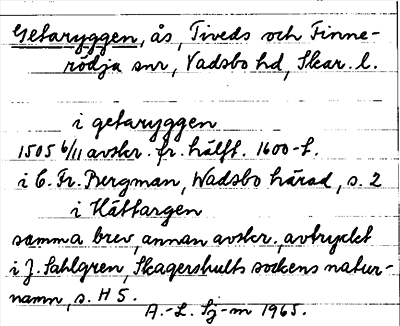 Getaryggen, ås, Tiveds och Finne-
rödja snr, Vadsbo hd, Skar. l.
i getaryggen
1505 6/11 avskr. fr. hälft. 1600-t.
i C. Fr. Bergman, Wadsbo härad, s. 2
i Kättargen
samma brev, annan avskr., avtryckt
i J. Sahlgren, Skagershults sockens natur-
namn, s. H 5.
A.-L. Sj-m 1965.